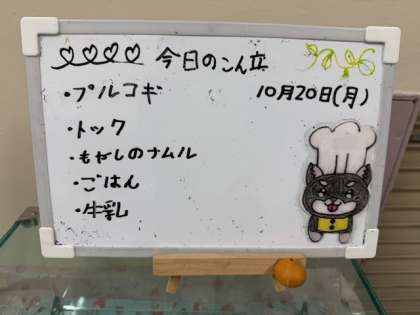 今日のこん立
10月20日(月)
・プルコギ
・トック
・もやしのナムル
・ごはん
・牛乳